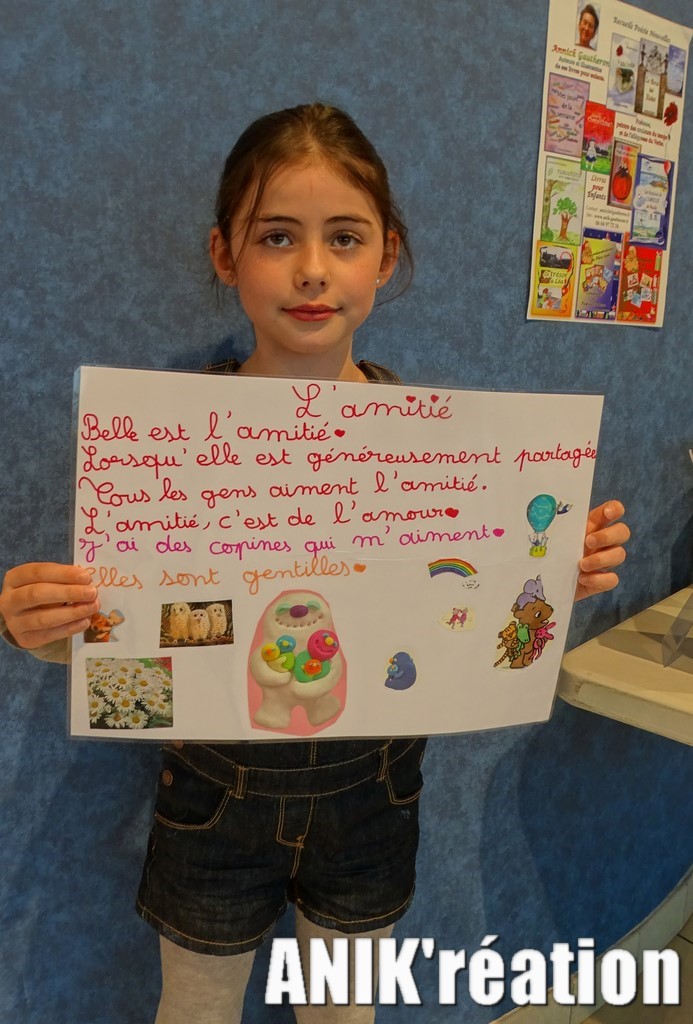 Recueils Poésie Nouvelles
Annick Gautheron
L'amitié
Belle est l'amitié.
Lorsqu'elle est généreusement partagée
Tous les gens aiment l'amitié.
L'amitié, c'est de l'amour
J'ai des copines qui m'aiment
Elles sont gentilles
Livres
pour
Enfants
ANIK'réation